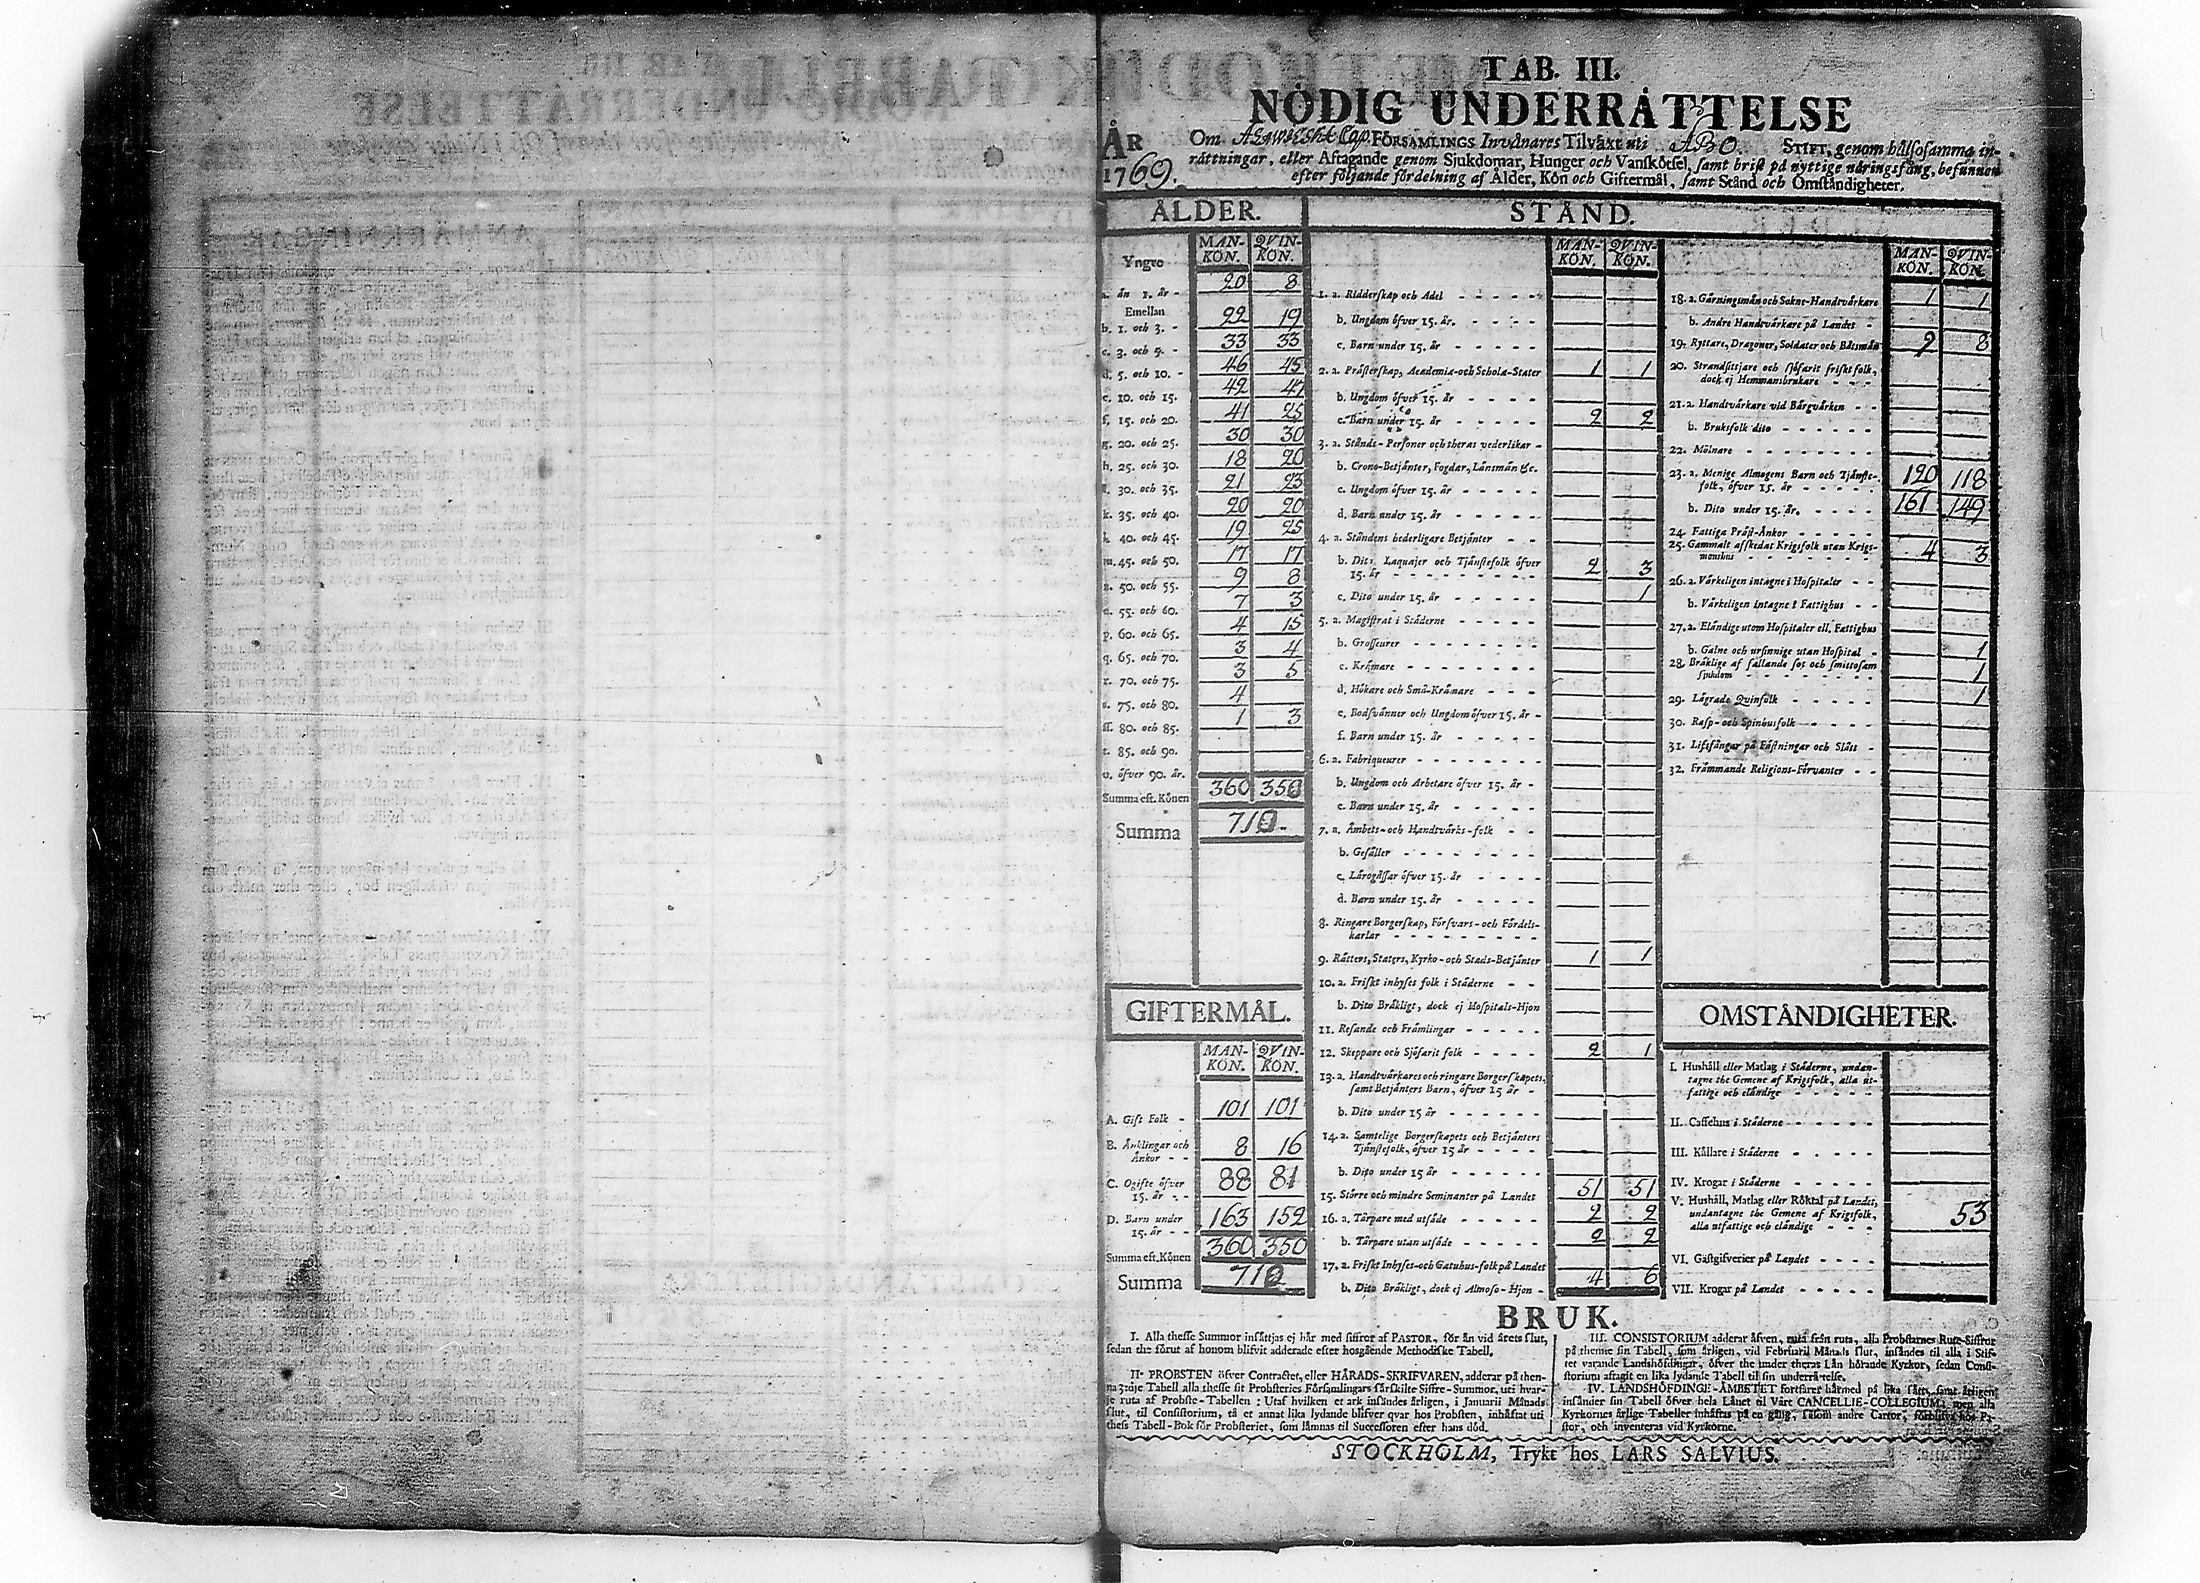 TAB. III.
NÖDIG UNDERRÄTTELSE
ÅR 1769.
Om Cap. FÖRSAMLINGS Invånares Tilväxt uti ÅBO. STIFT, genom hälsosamma in-
rättningar, eller Aftagande genom Sjukdomar, Hunger och Vanskötsel, samt brist på nyttige näringsfång, befunnen
efter följande fördelning af Ålder, Kön och Giftermål, samt Stånd och Omständigheter.
ÅLDER.
MAN-KÖN. QVIN-KÖN.
Yngre
a. än 1. år - 20 8
Emellan
b. 1. och 3. - 22 19
c. 3. och 5. - 33 33
d. 5. och 10. - 46 45
e. 10. och 15. 42 47
f. 15. och 20. 41 25
g. 20. och 25. 30 30
h. 25. och 30. 18 20
i. 30. och 35. 21 23
k. 35. och 40. 20 20
l. 40. och 45. 19 25
m. 45. och 50. 17 17
n. 50. och 55. 9 8
o. 55. och 60. 7 3
p. 60. och 65. 4 15
q. 65. och 70. 3 4
r. 70. och 75. 3 5
s. 75. och 80. 4
ss. 80. och 85. 1 3
t. 85. och 90.
u. öfver 90. år.
Summa eft. Könen 360 350
Summa 710.
GIFTERMÅL.
MAN-KÖN. QVIN-KÖN.
A. Gift Folk - 101 101
B. Änklingar och Änkor - - 8 16
C. Ogifte öfver 15. år - - 88 81
D. Barn under 15. år - - 163 152
Summa eft. Könen 360 350
Summa 710
STÅND.
MAN-KÖN. QVIN-KÖN.
1. a. Ridderskap och Adel
b. Ungdom öfver 15. år.
c. Barn under 15. år
2. a. Prästerskap, Academiæ-och Scholæ-Stater 1 1
b. Ungdom öfver 15. år
c. Barn under 15. år 2 2
3. a. Stånds-Personer och theras vederlikar
b. Crono-Betjänter, Fogdar, Länsmän &c.
c. Ungdom öfver 15. år
d. Barn under 15. år
4. a. Ståndens hederligare Betjänter
b. Dito Laquajer och Tjänstefolk öfver 15. år 2 3
c. Dito under 15. år 1
5. a. Magistrat i Städerne
b. Grosseurer
c. Krämare
d. Hökare och Små-Krämare
e. Bodsvänner och Ungdom öfver 15. år
f. Barn under 15. år
6. a. Fabriqueurer
b. Ungdom och Arbetare öfver 15. år
c. Barn under 15. år
7. a. Ämbets-och Handtvärks-folk
b. Gesäller
c. Lärogässar öfver 15. år
d. Barn under 15. år
8. Ringare Borgerskap, Försvars-och Fördels-karlar
9. Rätters, Staters, Kyrko-och Stads-Betjänter 1 1
10. a. Friskt inhyses folk i Städerne
b. Dito Bräkligt, dock ej Hospitals-Hjon
11. Resande och Främlingar
12. Skeppare och Sjöfarit folk 2 1
13. a. Handtvärkares och ringare Borgerskapets, samt Betjänters Barn, öfver 15 år
b. Dito under 15 år
14. a. Samtelige Borgerskapets och Betjänters Tjänstefolk, öfver 15 år
b. Dito under 15 år
15. Större och mindre Seminanter på Landet 51 51
16. a. Tårpare med utsäde 2 2
b. Tårpare utan utsäde 2 2
17. a. Friskt Inhyses-och Gatuhus-folk på Landet
b. Dito Bräkligt, dock ej Almoso-Hjon 4 6
MAN-KÖN. QVIN-KÖN.
18. a. Gärningsmän och Sokne-Handtvärkare 1 1
b. Andre Handtvärkare på Landet
19. Ryttare, Dragoner, Soldater och Båtsmän 9 8
20. Strandsittjare och sjöfarit friskt folk, dock ej Hemmansbrukare
21. a. Handtvärkare vid Bärgvärken
b. Bruksfolk dito
22. Mölnare
23. a. Menige Almogens Barn och Tjänste-folk, öfver 15. år 120 118
b. Dito under 15. år. 161 149
24. Fattiga Präst-Änkor
25. Gammalt afskedat Krigsfolk utan Krigsmanshus 4 3
26. a. Värkeligen intagne i Hospitaler
b. Värkeligen intagne i Fattighus
27. a. Eländige utom Hospitaler ell. Fattighus
b. Galne och ursinnige utan Hospital 1
28. Bräklige af fallande sot och smittosam sjukdom 1
29. Lägrade Qvinfolk 1
30. Rasp-och Spinhusfolk
31. Lifsfångar på Fästningar och Slått
32. Främmande Religions-Förvanter
OMSTÄNDIGHETER.
I. Hushåll eller Matlag i Städerne, undantagne the Gemene af Krigsfolk, alla utfattige och eländige
II. Caffehus i Städerne
III. Källare i Städerne
IV. Krogar i Städerne
V. Hushåll, Matlag eller Röktal på Landet, undantagne the Gemene af Krigsfolk, alla utfattige och eländige 53
VI. Gästgifverier på Landet
VII. Krogar på Landet
BRUK.
I. Alla thesse Summor insättjas ej här med siffror af PASTOR, för än vid årets slut,
sedan the förut af honom blifvit adderade efter hosgående Methodiske Tabell.
II. PROBSTEN öfver Contractet, eller HÄRADS-SKRIFVAREN, adderar på then-
na 3:dje Tabell alla thesse sit Probsteries Församlingars särskilte Siffre-Summor, uti hvar-
je ruta af Probste-Tabellen: Utaf hvilken et ark insändes årligen, i Januarii Månads
slut, til Consistorium, tå et annat lika lydande blifver qvar hos Probsten, inhäftat uti
thess Tabell-Bok för Probsteriet, som lämnas til Successoren efter hans död.
III. CONSISTORIUM adderar äfven, ruta från ruta, alla Probstarnes Rute-Siffror
på themne sin Tabell, som årligen, vid Februarii Månads slut, insändes til alla i Stif-
tet varande Landshöfdingar, öfver the under theras Län hörande Kyrkor, sedan Consi-
storium aftagit en lika lydande Tabell til sin underrättelse.
IV. LANDSHÖFDINGE-ÄMBETET fortfarer härmed på lika sätt, samt årligen
insänder sin Tabell öfver hela Länet til Vårt CANCELLIE-COLLEGIUM; men alla
Kyrkornes årlige Tabeller inhäftas på en gång, såsom andre Cartor, förblifva hos Pa-
stor, och inventeras vid Kyrkorne.
STOCKHOLM, Trykt hos LARS SALVIUS.